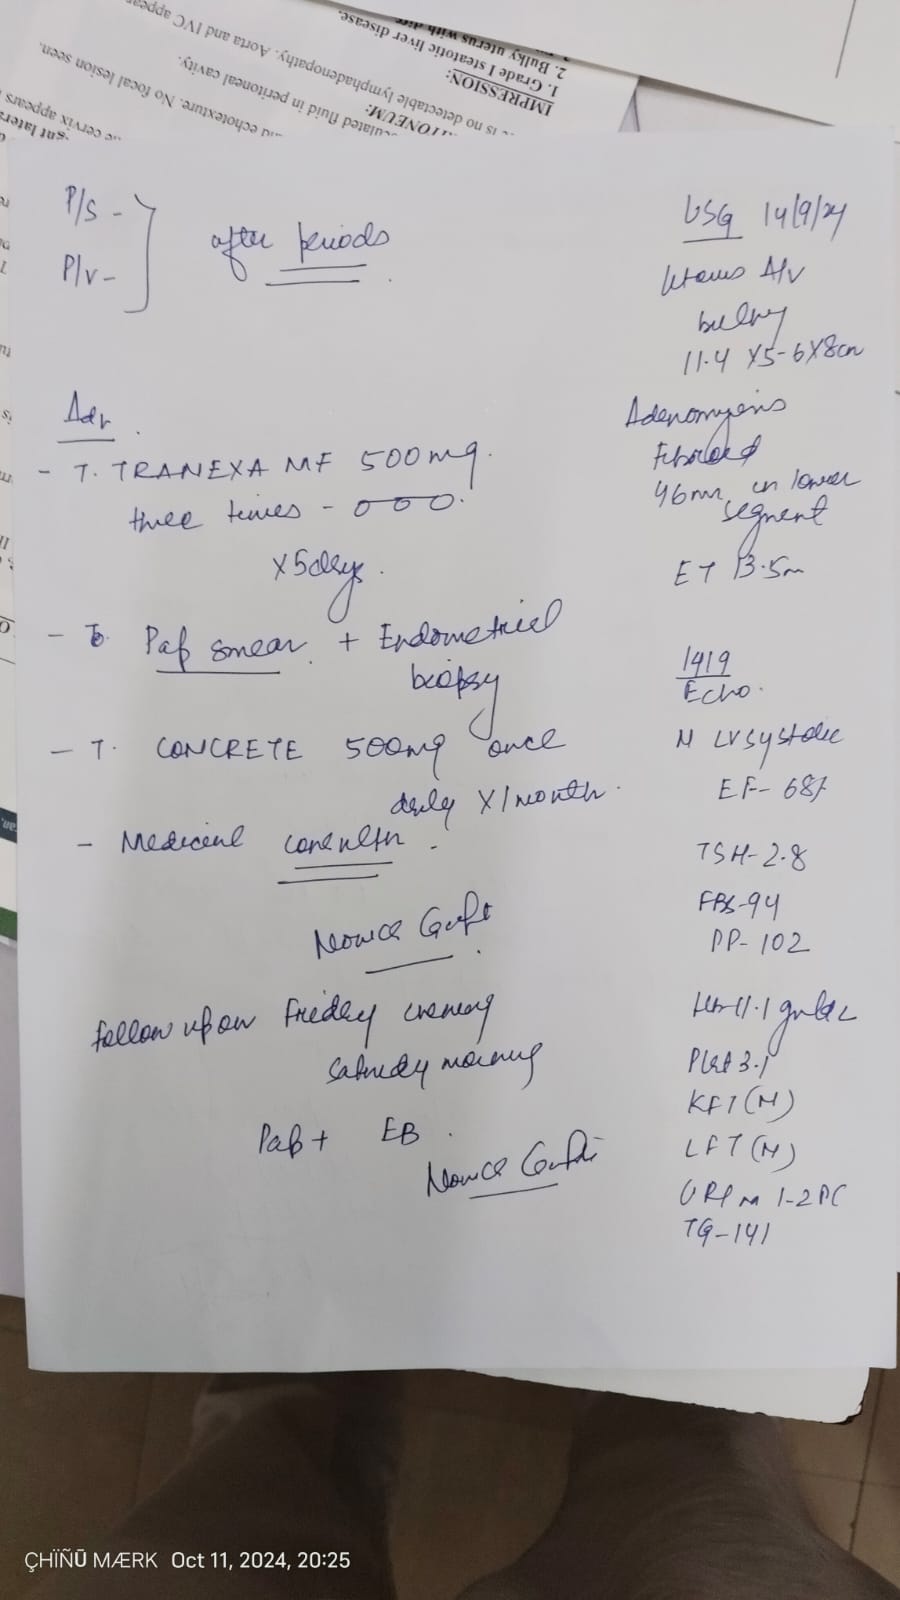 IMPRESSION:
1. Grade I steatotic liver disease.
2. Bulky uterus with
is no detectable lymphadenopathy. Aorta and IVC appear
fluid in peritoneal cavity.
echotexture. No focal lesion seen.
cervix appears
P/S -
P/V -
after periods
Adv
- T. TRANEXA MF 500mg.
three times - 0 0 0.
X 5 days.
- Pap smear + Endometrial
biopsy
- T. CONCRETE 500mg once
daily X 1 month.
- Medicine
Follow up on Friday evening
Saturday morning
Pap + EB.
USG 14/9/24
Uterus A/V
bulky
11.4 X 5-6 X 8cm
Adenomyosis
Fibroid
46mm in lower
segment
ET 13.5m
Echo.
N LV systolic
EF- 68%
TSH-2.8
FBS-94
PP-102
Hb-11.1
Plat 3.1
KFT (N)
LFT (N)
1-2 PC
TG-141
ÇHÏÑŪ MÆRK Oct 11, 2024, 20:25